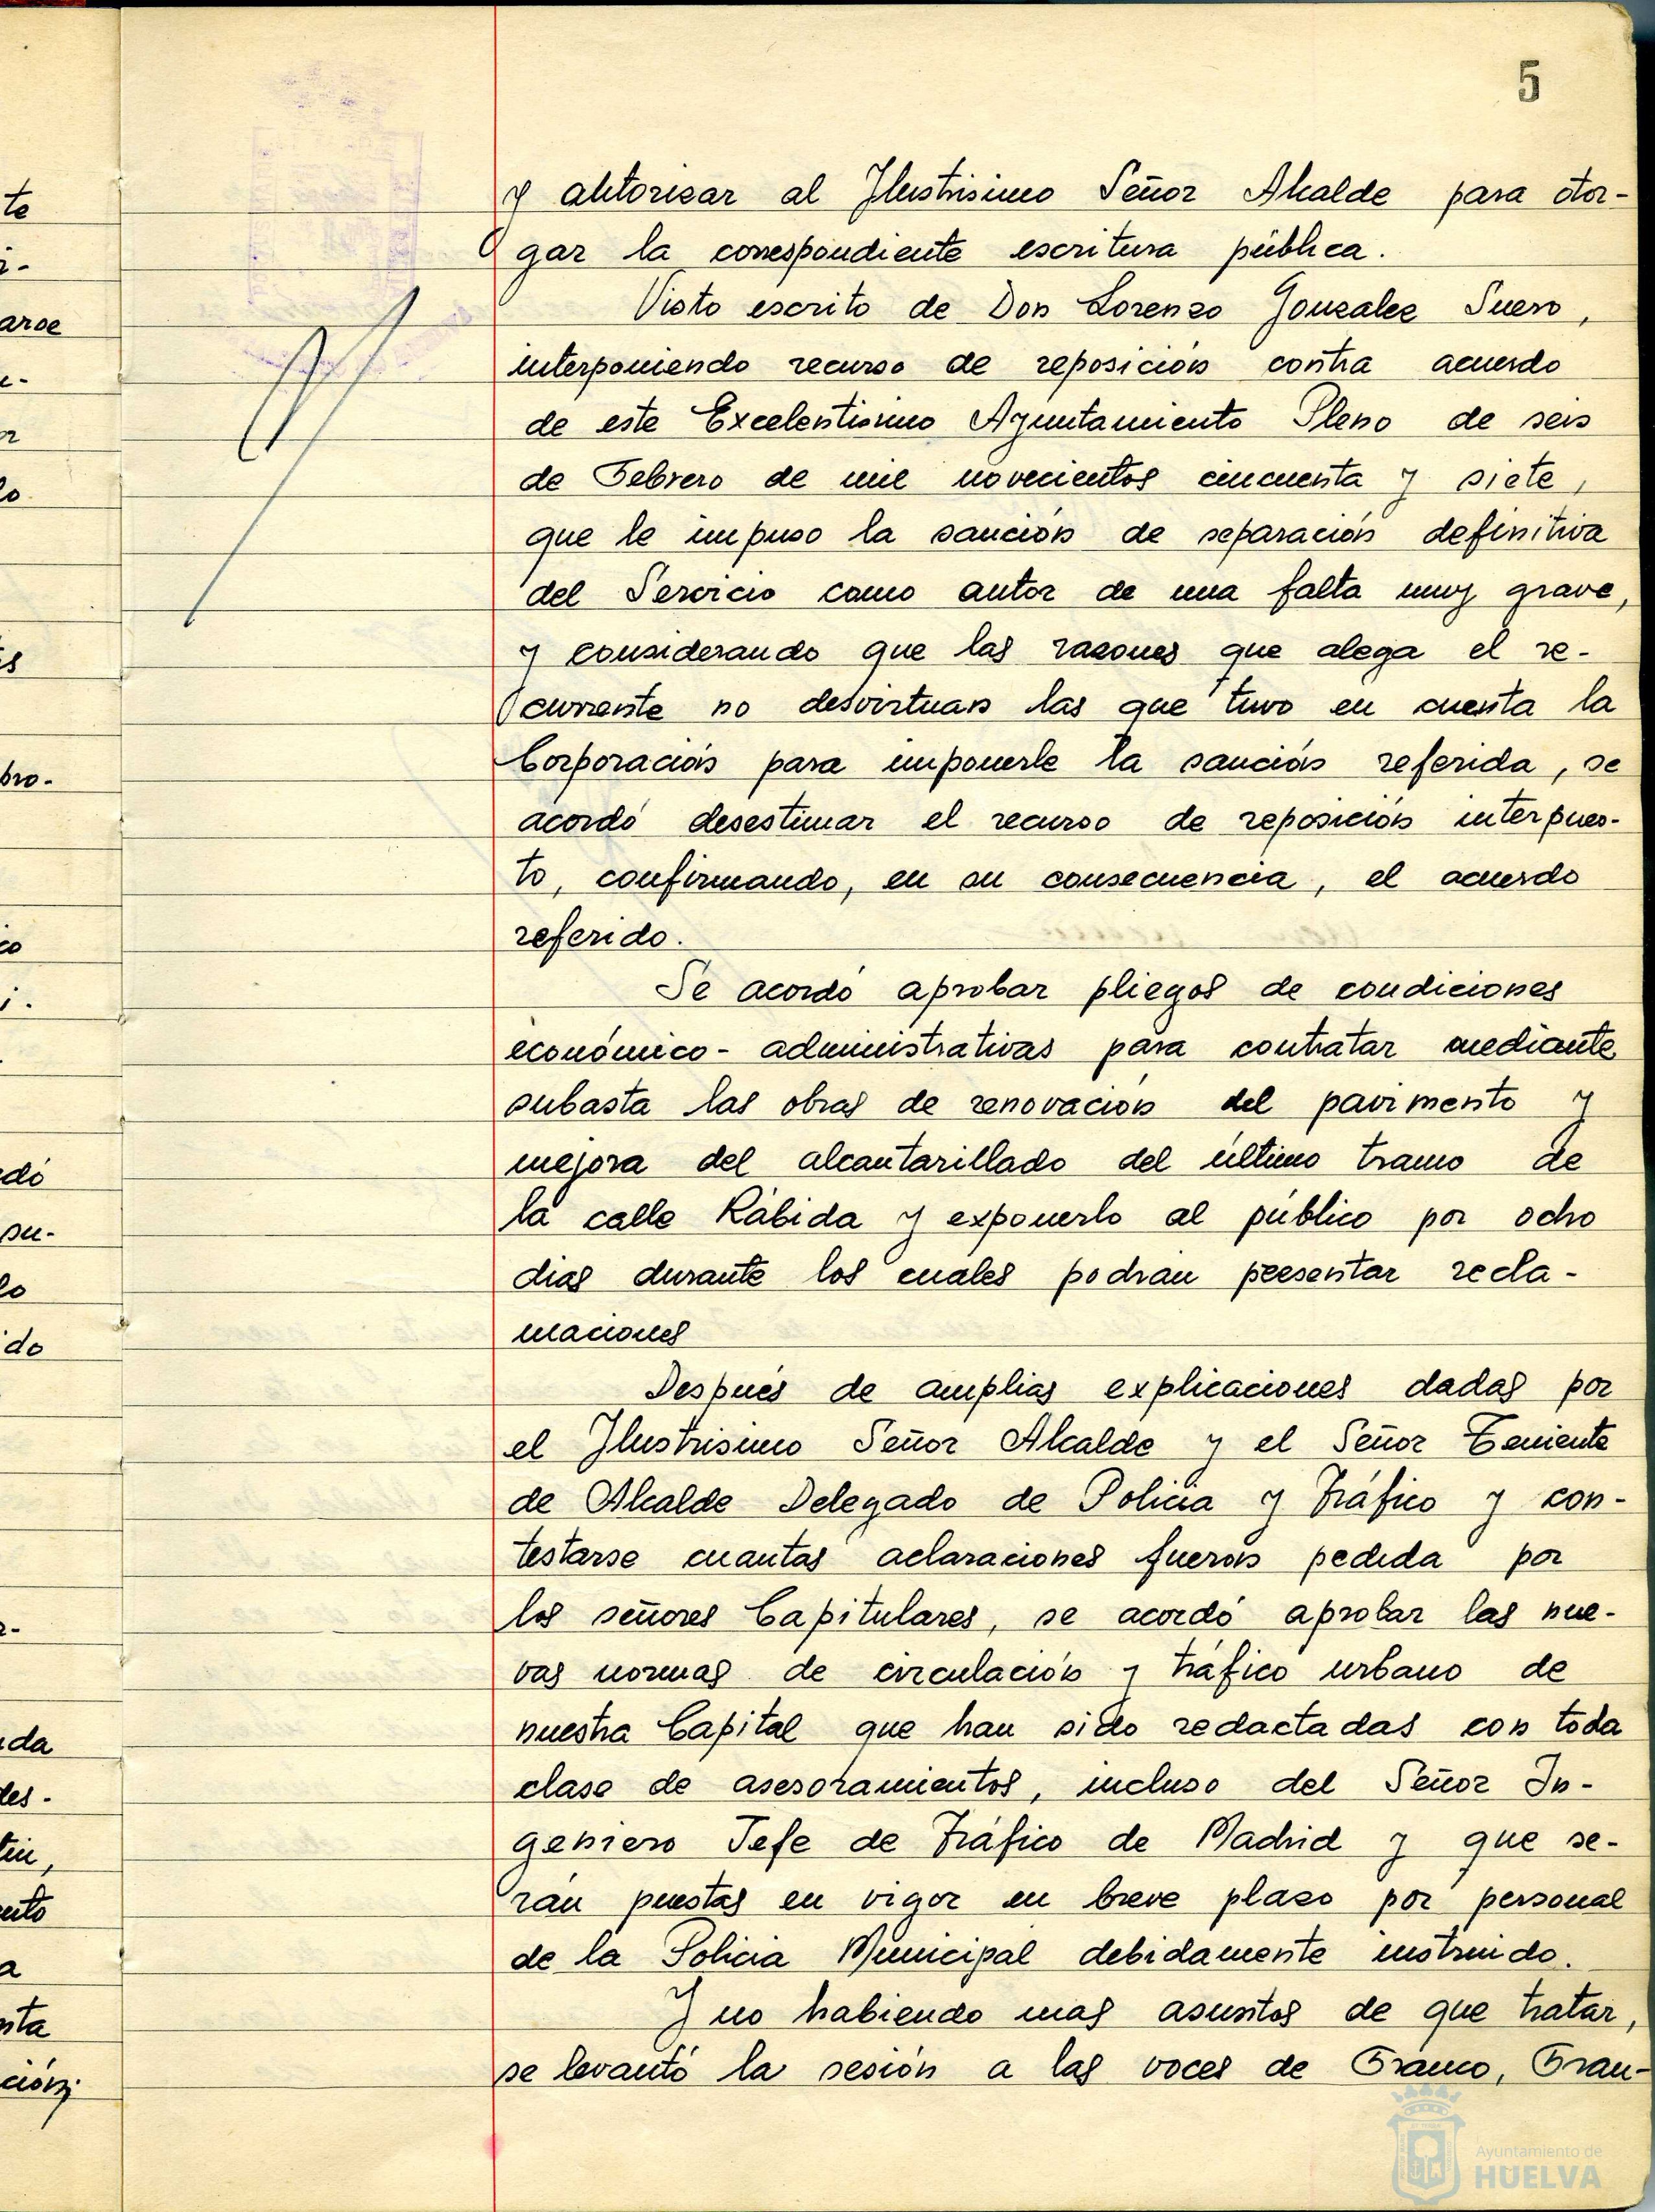 5
y autorizar al Ilustrisimo Señor Alcalde para otor-
gar la correspondiente escritura pública.
Visto escrito de Don Lorenzo Gonzalez Suero,
interponiendo recurso de reposición contra acuerdo
de este Excelentisimo Ayuntamiento Pleno de seis
de Febrero de mil novecientos cincuenta y siete,
que le impuso la sanción de separación definitiva
del Servicio como autor de una falta muy grave,
y considerando que las razones que alega el re-
currente no desvirtuan las que tuvo en cuenta la
Corporación para imponerle la sanción referida, se
acordó desestimar el recurso de reposición interpues-
to, confirmando, en su consecuencia, el acuerdo
referido.
Se acordó aprobar pliegos de condiciones
económico-administrativas para contratar mediante
subasta las obras de renovación del pavimento y
mejora del alcantarillado del último tramo de
la calle Rábida y exponerlo al público por ocho
dias durante los cuales podran presentar recla-
maciones
Después de amplias explicaciones dadas por
el Ilustrisimo Señor Alcalde y el Señor Teniente
de Alcalde Delegado de Policia y Tráfico y con-
testarse cuantas aclaraciones fueron pedida por
los señores Capitulares, se acordó aprobar las nue-
vas normas de circulación y tráfico urbano de
nuestra Capital que han sido redactadas con toda
clase de asesoramientos, incluso del Señor In-
geniero Jefe de Tráfico de Madrid y que se-
rán puestas en vigor en breve plazo por personal
de la Policia Municipal debidamente instruido.
Y no habiendo mas asuntos de que tratar,
se levantó la sesión a las voces de Franco, Fran-
Ayuntamiento de
HUELVA